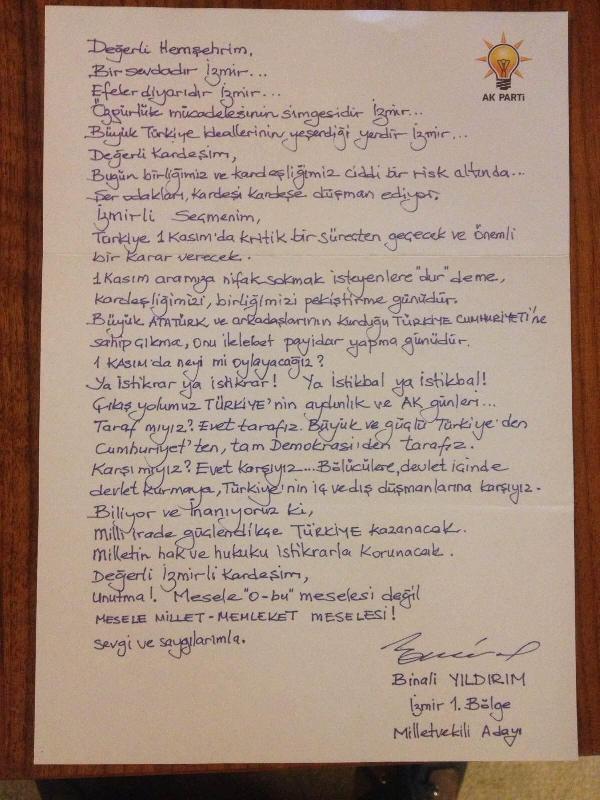 AK PARTİ
Değerli Hemşehrim,
Bir sevdadır İzmir...
Efeler diyarıdır İzmir...
Özgürlük mücadelesinin simgesidir İzmir...
Büyük Türkiye ideallerinin yeşerdiği yerdir İzmir...
Değerli Kardeşim,
Bugün birliğimiz ve kardeşliğimiz ciddi bir risk altında...
Şer odakları, kardeşi kardeşe düşman ediyor.
İzmirli Seçmenim,
Türkiye 1 Kasım'da kritik bir süreçten geçecek ve önemli
bir karar verecek.
1 Kasım aramıza nifak sokmak isteyenlere "dur" deme,
kardeşliğimizi, birliğimizi pekiştirme günüdür.
Büyük ATATÜRK ve arkadaşlarının kurduğu TÜRKİYE CUMHURİYETİ'ne
sahip çıkma, onu ilelebet payidar yapma günüdür.
1 KASIM'da neyi mi oylayacağız?
Ya istikrar ya istikrar! Ya istikbal ya istikbal!
Çıkış yolumuz TÜRKİYE'nin aydınlık ve AK günleri...
Taraf mıyız? Evet tarafız. Büyük ve güçlü Türkiye'den
Cumhuriyet'ten, tam Demokrasi'den tarafız.
Karşı mıyız? Evet karşıyız.... Bölücülere, devlet içinde
devlet kurmaya, Türkiye'nin iç ve dış düşmanlarına karşıyız.
Biliyor ve İnanıyoruz ki,
Milli irade güçlendikçe TÜRKİYE kazanacak.
Milletin hak ve hukuku istikrarla korunacak.
Değerli İzmirli Kardeşim,
Unutma!. Mesele "o-bu" meselesi değil
MESELE MİLLET-MEMLEKET MESELESİ!
Sevgi ve saygılarımla.
Binali YILDIRIM
İzmir 1. Bölge
Milletvekili Adayı